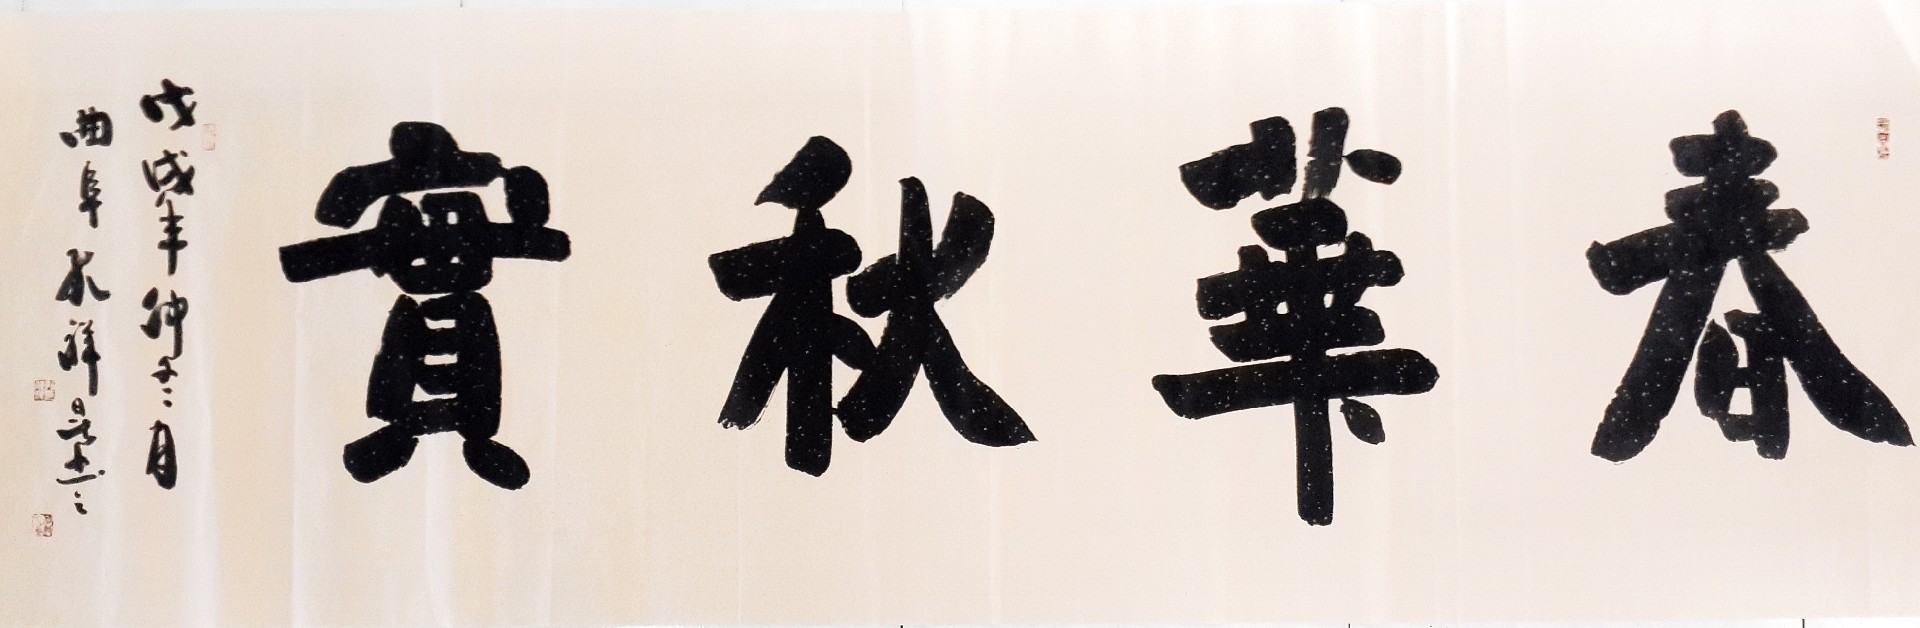 春華秋實
戊戌年仲冬月
曲阜孔祥